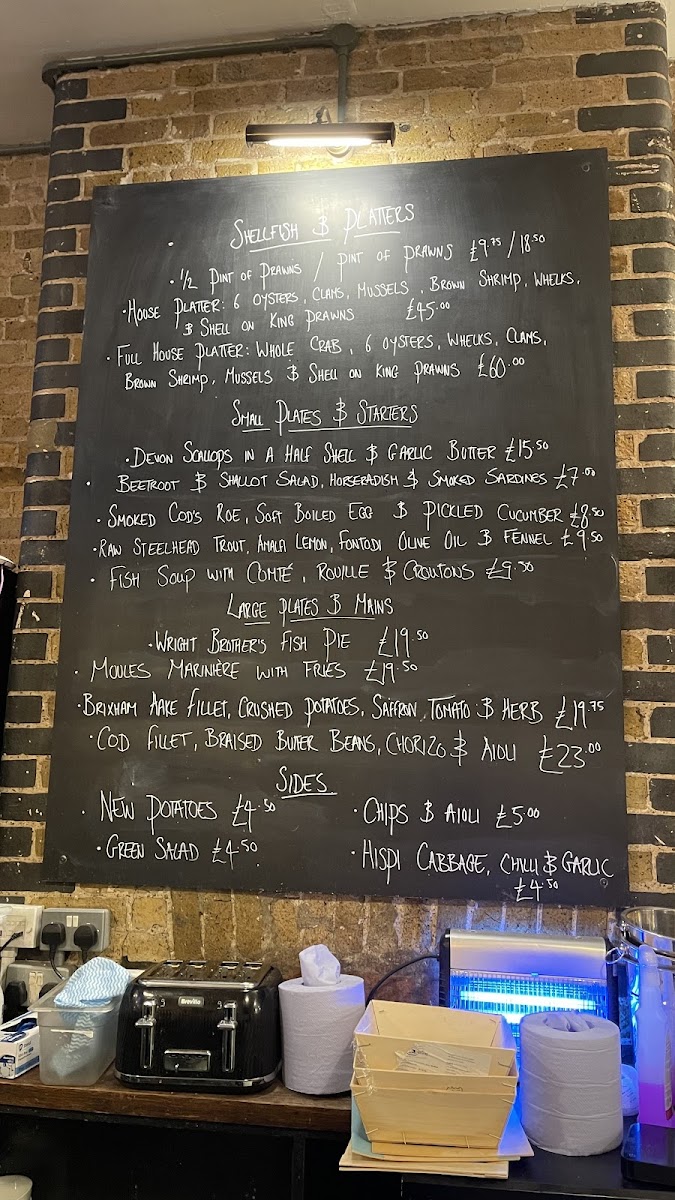 SHELLFISH & PLATTERS
· 1/2 PINT OF PRAWNS / PINT OF PRAWNS £9.75 / 18.50
· HOUSE PLATTER: 6 OYSTERS, CLAMS, MUSSELS, BROWN SHRIMP, WHELKS,
& SHELL ON KING PRAWNS £45.00
· FULL HOUSE PLATTER: WHOLE CRAB, 6 OYSTERS, WHELKS, CLAMS,
BROWN SHRIMP, MUSSELS & SHELL ON KING PRAWNS £60.00
SMALL PLATES & STARTERS
· DEVON SCALLOPS IN A HALF SHELL & GARLIC BUTTER £15.50
· BEETROOT & SHALLOT SALAD, HORSERADISH & SMOKED SARDINES £7.00
· SMOKED COD'S ROE, SOFT BOILED EGG & PICKLED CUCUMBER £8.50
· RAW STEELHEAD TROUT, AMALFI LEMON, FONTODI OLIVE OIL & FENNEL £9.50
· FISH SOUP WITH COMTÉ, ROUILLE & CROUTONS £9.50
LARGE PLATES & MAINS
· WRIGHT BROTHER'S FISH PIE £19.50
· MOULES MARINIÈRE WITH FRIES £19.50
· BRIXHAM HAKE FILLET, CRUSHED POTATOES, SAFFRON, TOMATO & HERB £19.75
· COD FILLET, BRAISED BUTTER BEANS, CHORIZO & AIOLI £23.00
SIDES
· NEW POTATOES £4.50
· GREEN SALAD £4.50
· CHIPS & AIOLI £5.00
· HISPI CABBAGE, CHILLI & GARLIC
£4.50
Breville